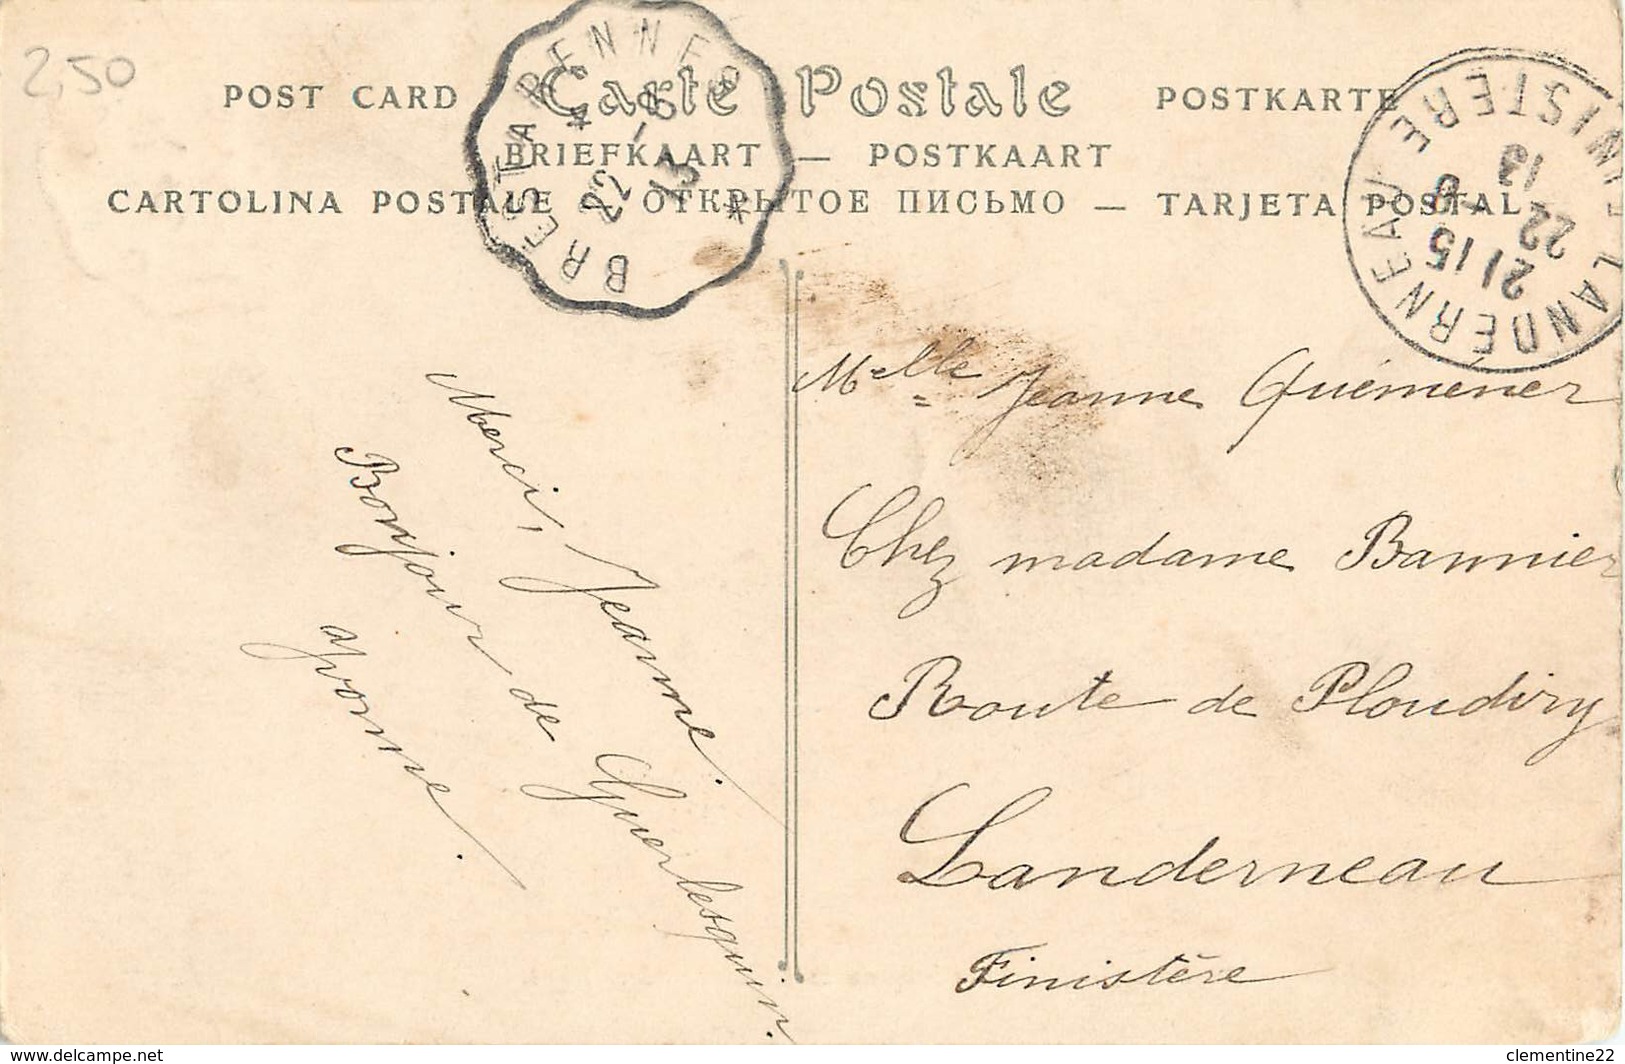 2,50
POST CARD Carte Postale POSTKARTE
BRIEFKAART — POSTKAART
CARTOLINA POSTALE — ОТКРЫТОЕ ПИСЬМО — TARJETA POSTAL
BREST A RENNES
22 -8
13
LANDERNEAU FINISTERE
21 15
22 8
13
Merci, Jeanne.
Bonjour de Guerlesquin.
Yvonne.
Melle Jeanne Quéméner
Chez madame Bannier
Route de Ploudiry
Landerneau
Finistère
www.delcampe.net
clementine22